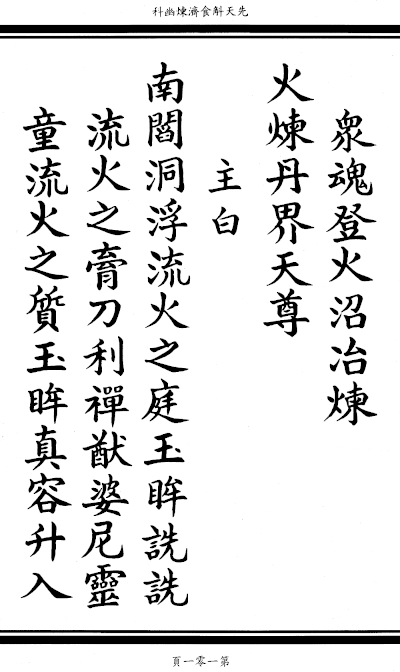 先天斛食濟煉幽科
眾魂登火沼冶煉
火煉丹界天尊
主白
南閻洞浮流火之庭玉眸詵詵
流火之膏刀利禪猷婆尼靈
童流火之質玉眸真容升入
第一零一頁